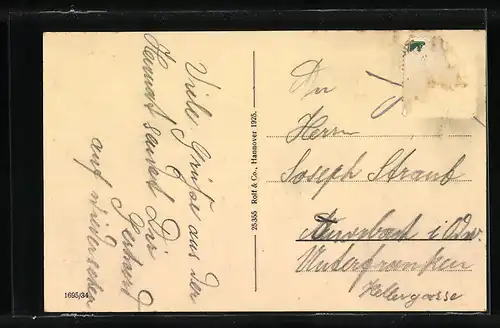 Viele Grüße aus der
Heimat sendet Dir
Gerhard
auf wiedersehen
25355 Rolf & Co., Hannover 1925.
1695/34
An
Herrn
Joseph Straub
Amorbach i. Odw.
Unterfranken
Kellergasse